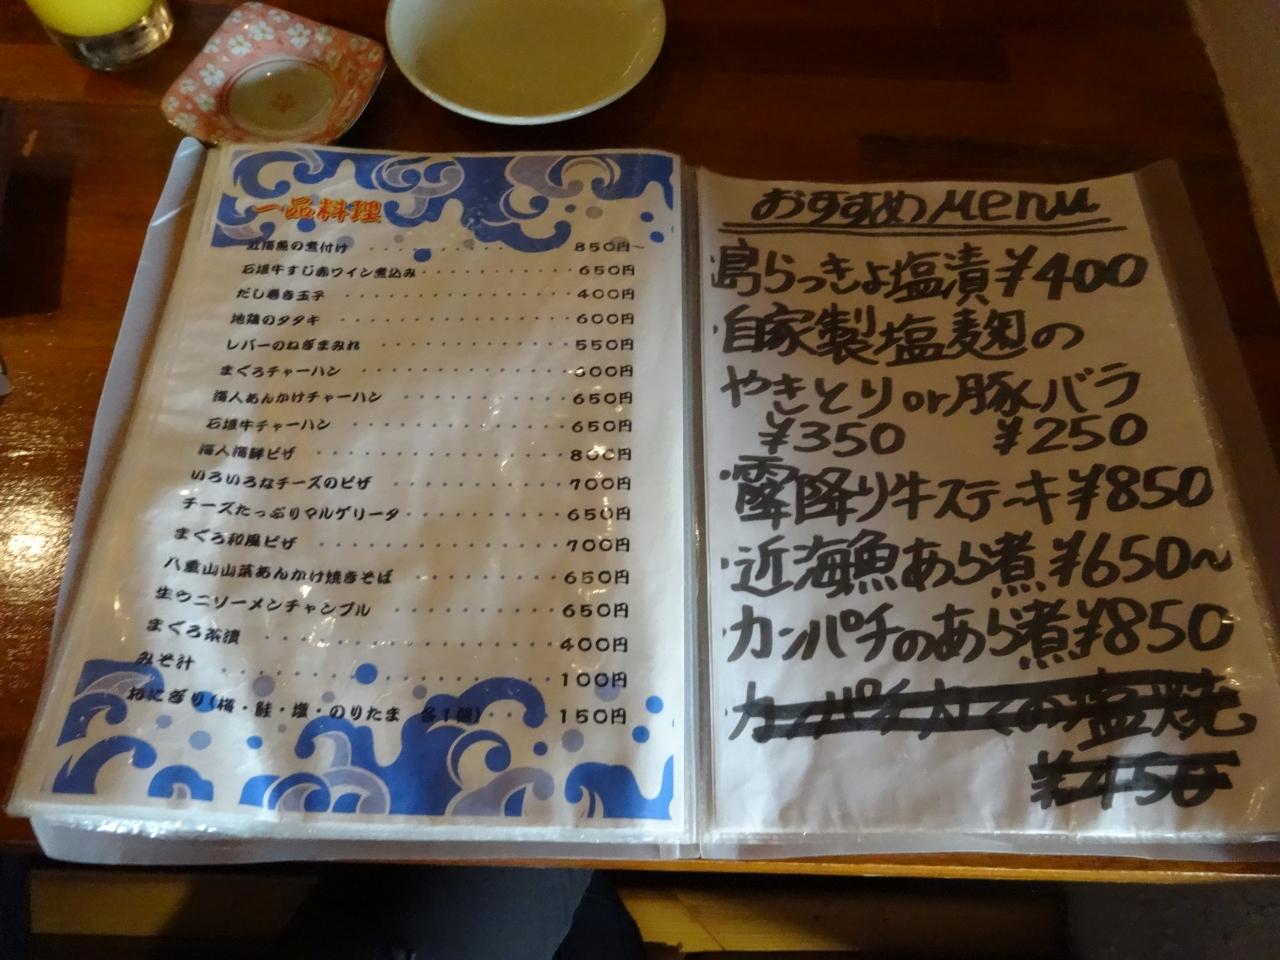 一品料理
近海魚の煮付け ・・・・・・・・・・・・ 850円～
石垣牛すじ赤ワイン煮込み・・・・・・・・・・ 650円
だし巻き玉子 ・・・・・・・・・・・・・・・ 400円
地鶏のタタキ ・・・・・・・・・・・・・・・ 600円
レバーのねぎまみれ ・・・・・・・・・・・・ 550円
まぐろチャーハン ・・・・・・・・・・・・・ 600円
海人あんかけチャーハン ・・・・・・・・・・ 650円
石垣牛チャーハン ・・・・・・・・・・・・・ 650円
海人海鮮ピザ ・・・・・・・・・・・・・・・ 800円
いろいろなチーズのピザ ・・・・・・・・・・ 700円
チーズたっぷりマルゲリータ・・・・・・・・・ 650円
まぐろ和風ピザ ・・・・・・・・・・・・・・ 700円
八重山山菜あんかけ焼きそば ・・・・・・・・ 650円
生ウニソーメンチャンプル ・・・・・・・・・ 650円
まぐろ茶漬 ・・・・・・・・・・・・・・・・ 400円
みそ汁 ・・・・・・・・・・・・・・・・・・ 100円
おにぎり(梅・鮭・塩・のりたま 各1個)・・・ 150円
おすすめMenu
島らっきょ塩漬¥400
・自家製塩麹の
やきとりor豚バラ
¥350 ¥250
・霜降り牛ステーキ¥850
・近海魚あら煮¥650～
・カンパチのあら煮¥850
¥450